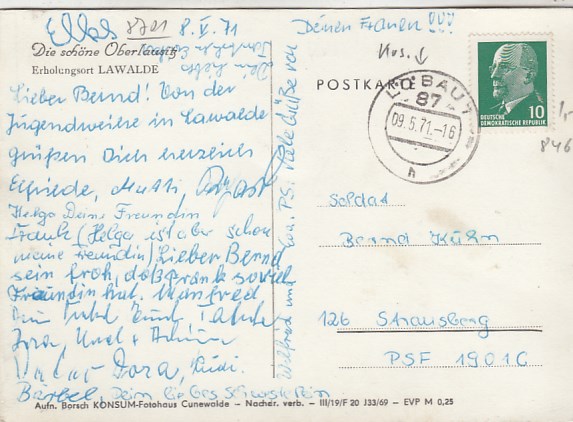 8701
8.V.71
Die schöne Oberlausitz
Erholungsort LAWALDE
Lieber Bernd! Von der
Jugendweihe in Lawalde
grüßen Dich herzlich
Elfriede, Mutti
Helga Deine Freundin
Frank (Helga ist aber schon
meine Freundin) Lieber Bernd
sein froh, daß Frank soviel
Freundin hat. Manfred
Dora, Rudi.
Bärbel, Dein
Wilfried und
PS. Viele Grüße von
Deinen Frauen!!!
POSTKARTE
LÖBAU 1
87
09.5.71.-16
h
DEUTSCHE
DEMOKRATISCHE REPUBLIK
10
1,-
846
Soldat
Bernd Kühn
126 Strausberg
PSF 1901C
Aufn. Borsch KONSUM-Fotohaus Cunewalde – Nachdr. verb. – III/19/F 20 J33/69 – EVP M 0,25